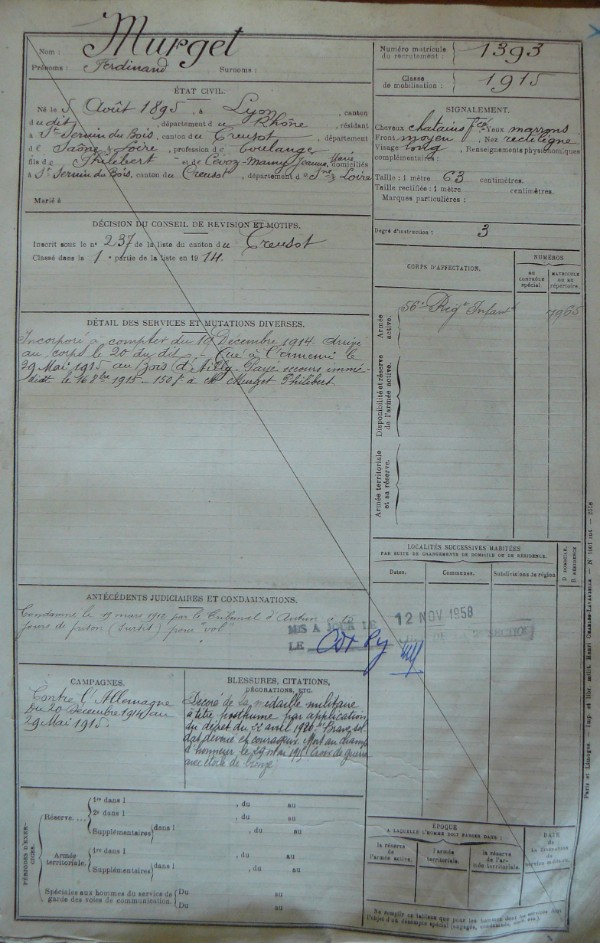 Nom : Murget
Prénoms : Ferdinand Surnoms :
Numéro matricule du recrutement : 1393
Classe de mobilisation : 1915
ÉTAT CIVIL.
Né le 5 Août 1895, à Lyon, canton
du dit, département du Rhône, résidant
à St Sernin du Bois, canton du Creusot, département
de Saône & Loire, profession de
fils de Philibert et de Jeanne Marie, domiciliés
à St Sernin du Bois, canton du Creusot, département de Sne & Loire
Marié à
SIGNALEMENT.
Cheveux chatains Yeux marrons
Front moyen Nez rectiligne
Visage long Renseignements physionomiques
complémentaires :
Taille : 1 mètre 63 centimètres.
Taille rectifiée : 1 mètre centimètres.
Marques particulières :
Degré d'instruction : 3
DÉCISION DU CONSEIL DE REVISION ET MOTIFS.
Inscrit sous le n° 237 de la liste du canton du Creusot
Classé dans la 1e partie de la liste en 1914.
CORPS D'AFFECTATION.
NUMÉROS
AU CONTRÔLE spécial.
MATRICULE OU AU répertoire.
Armée active.
56e Régt Infant
Disponibilité et réserve de l'armée active.
Armée territoriale et sa réserve.
DÉTAIL DES SERVICES ET MUTATIONS DIVERSES.
Incorporé à compter du 19 Décembre 1914. Arrivé
au corps le 20 du dit. Tué à l'ennemi le
29 Mai 1915 au Bois d'Ailly. Payé secours immé-
diat le 16 8bre 1915 - 150f à Murget Philibert
LOCALITÉS SUCCESSIVES HABITÉES
PAR SUITE DE CHANGEMENTS DE DOMICILE OU DE RÉSIDENCE.
Dates. Communes. Subdivisions la région
D DOMICILE. R RÉSIDENCE
ANTÉCÉDENTS JUDICIAIRES ET CONDAMNATIONS.
Condamné le mars 1912 par le Tribunal d'Autun
jours de prison (sursis) pour "vol"
MIS A JOUR LE
12 NOV 1958
LE
CAMPAGNES.
Contre l'Allemagne
du 20 Décembre 1914 au
29 Mai 1915.
BLESSURES, CITATIONS,
DÉCORATIONS, ETC.
Décoré de la médaille militaire
à titre posthume par application
du décret du 22 avril 1920. Brave sol
dat dévoué et courageux. Mort au champ
d'honneur le 29 mai 1915. Croix de guerre
avec étoile de bronze
PÉRIODES D'EXERCICES.
Réserve.
1re dans l , du au
2e dans l , du au
Supplémentaires dans l , du au
Armée territoriale.
1re dans l , du au
Supplémentaires dans l , du au
Spéciales aux hommes du service de garde des voies de communication.
Du au
Du au
ÉPOQUE
A LAQUELLE L'HOMME DOIT PASSER DANS :
la réserve de l'armée active.
l'armée territoriale.
la réserve de l'armée territoriale.
DATE de la libération du service militaire.